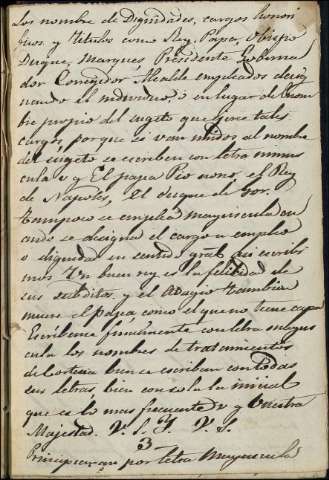 Los nombre de Dignidades, cargos honori
ficos, y titulos como Rey, Papa, Obispo
Duque, Marques Presidente Goberna
dor Corregidor Alcalde empleados desig
nando el individuo, o en lugar de nom
bre propio del sugeto que ejerce tales
cargos, porque si van unidos al nombre
del sugeto se escriben con letra minus
cula v y El papa Pio nono, el Rey
de Napoles, El duque de
Tampoco se emplea mayuscula cu
ando se designa el cargo o empleo
o dignidad en sentido gral, asi escribi
mos Un buen rey es la felicidad de
sus subditos, y el Adagio tambien
muere el papa como el que no tiene capa
Escribense finalmente con letra mayus
cula los nombres de tratamientos
de cortesia bien se escriban con todas
sus letras bien con sola la inicial
que es lo mas frecuente v y Vuestra
Majestad. V. S. I. V. S.
3
Principiaran por letra Mayuscula